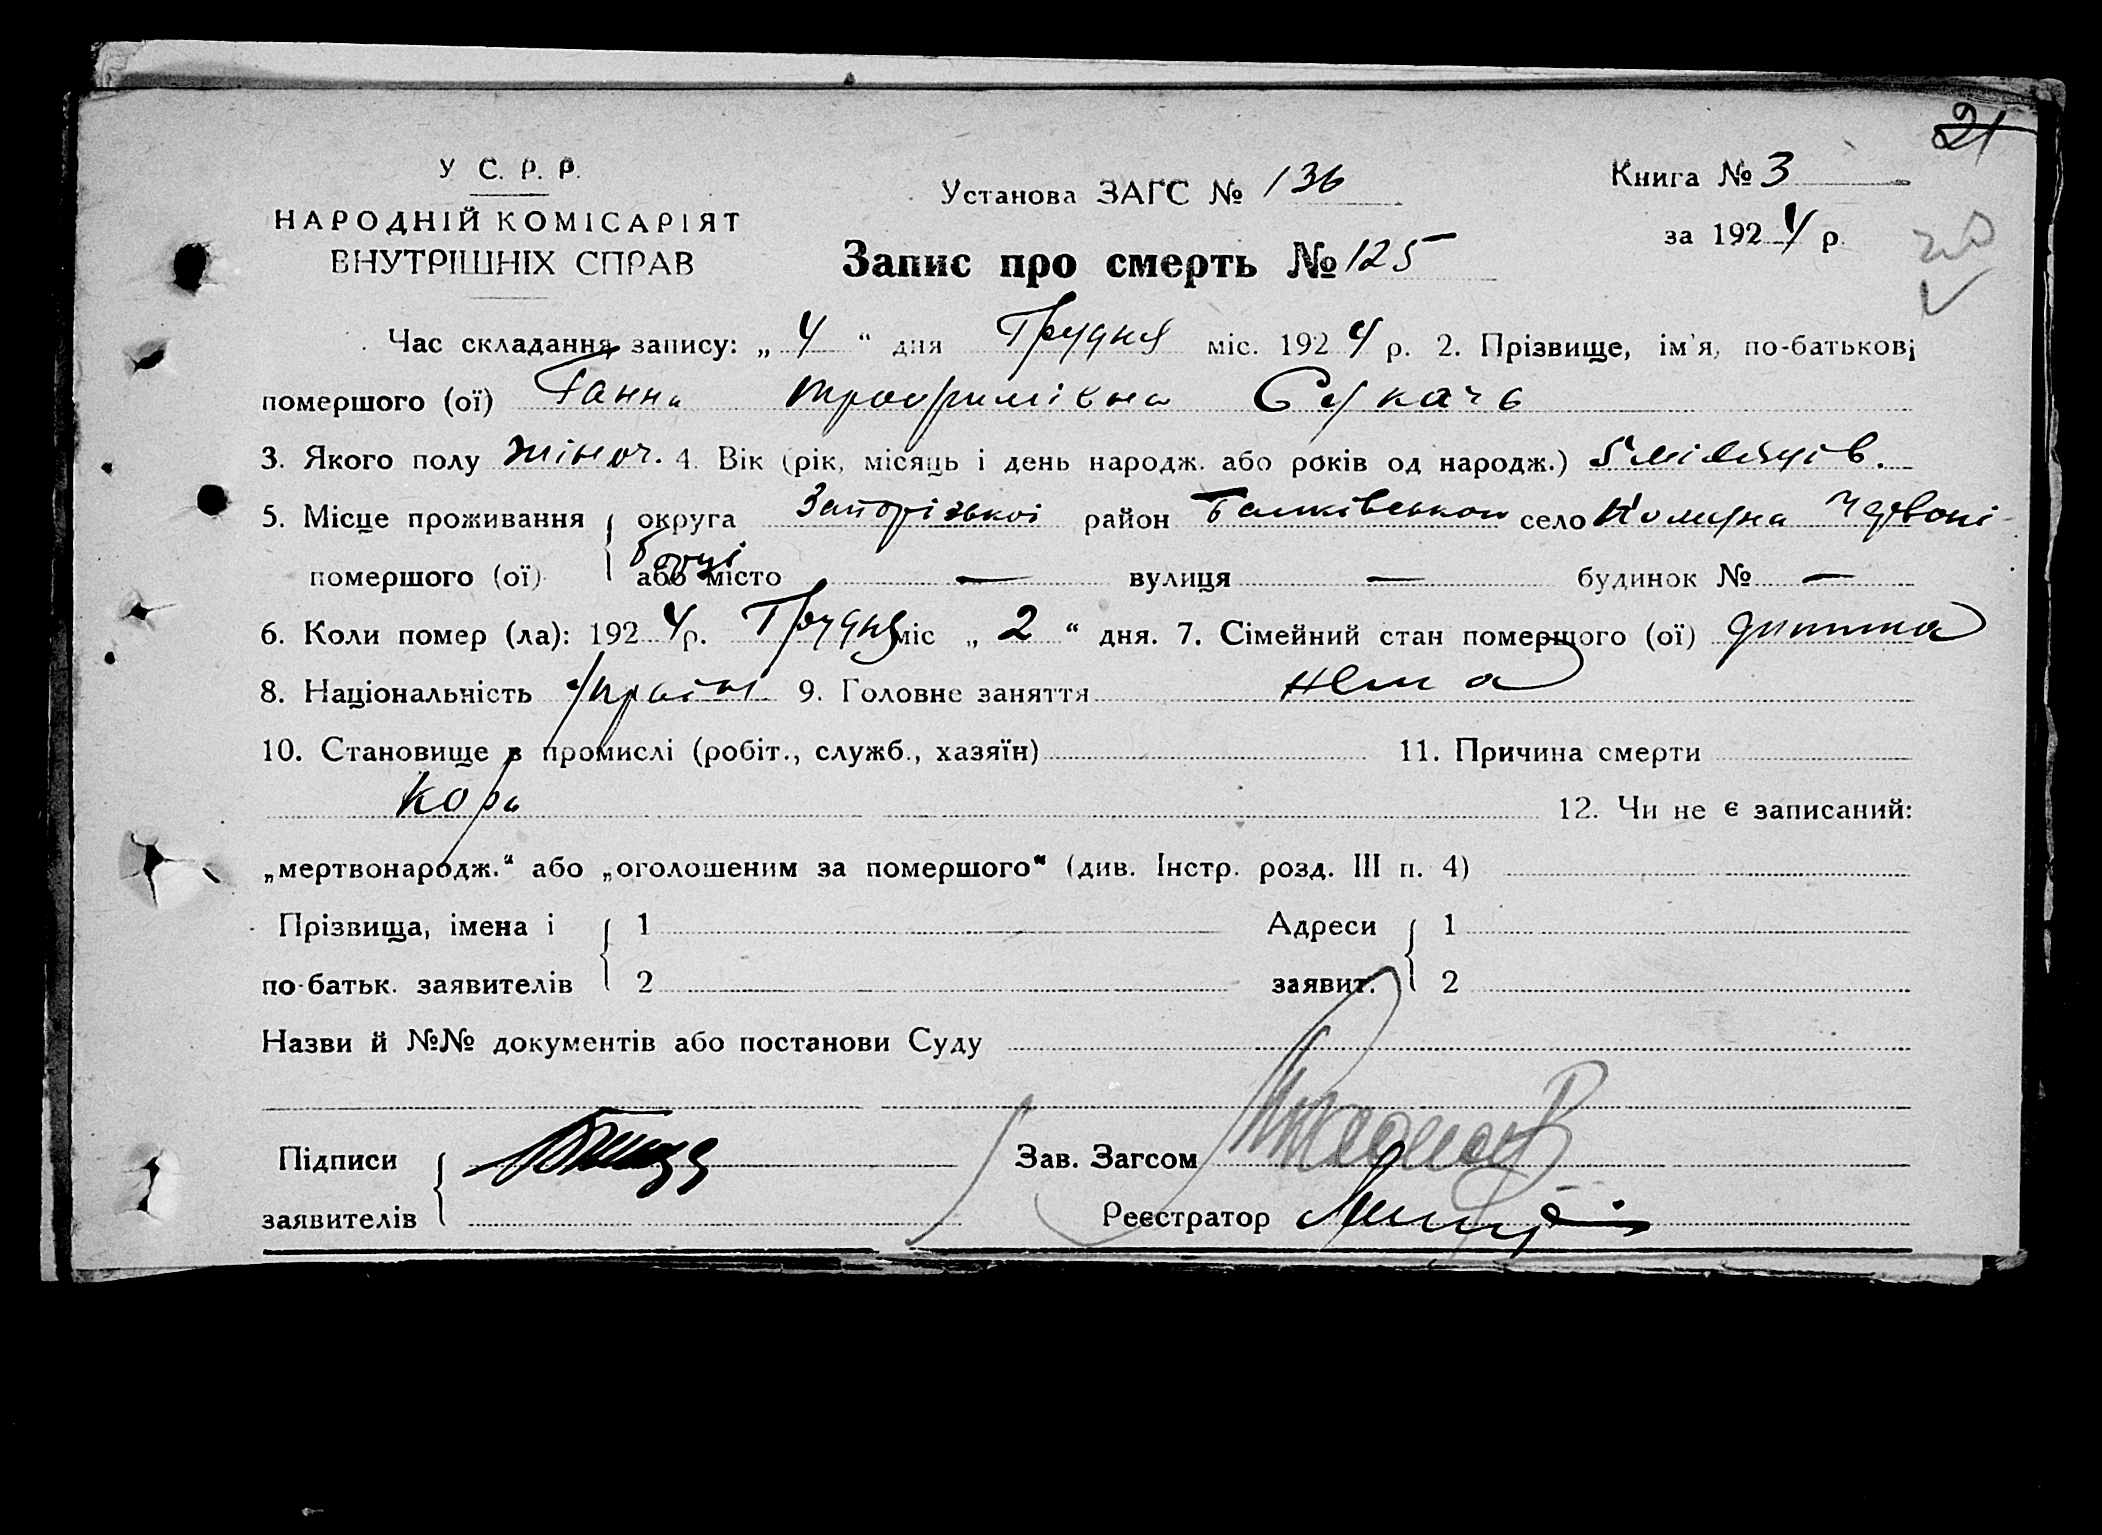 21
У С. Р. Р.
НАРОДНІЙ КОМІСАРІЯТ
ВНУТРІШНІХ СПРАВ
Установа ЗАГС № 136
Книга № 3
за 1924 р.
Запис про смерть № 125
Час складання запису: „4“ дня Грудня міс. 1924 р. 2. Прізвище, ім'я, по-батькові
помершого (ої) Ганна Трофимівна
3. Якого полу жіноч. 4. Вік (рік, місяць і день народж. або років од народж.) 5 місяців.
5. Місце проживання округа Запорізькоі район село Комуна Червоні
борці
помершого (ої) або місто — вулиця — будинок № —
6. Коли помер (ла): 1924 р. Грудня міс „2“ дня. 7. Сімейний стан помершого (ої) дитина
8. Національність Україн 9. Головне заняття нема
10. Становище в промислі (робіт., служб., хазяїн) 11. Причина смерти
Кора
12. Чи не є записаний:
„мертвонародж.“ або „оголошеним за помершого“ (див. Інстр. розд. III п. 4)
Прізвища, імена і 1 Адреси 1
по-батьк. заявителів 2 заявит. 2
Назви й №№ документів або постанови Суду
Підписи Зав. Загсом
заявителів Реєстратор